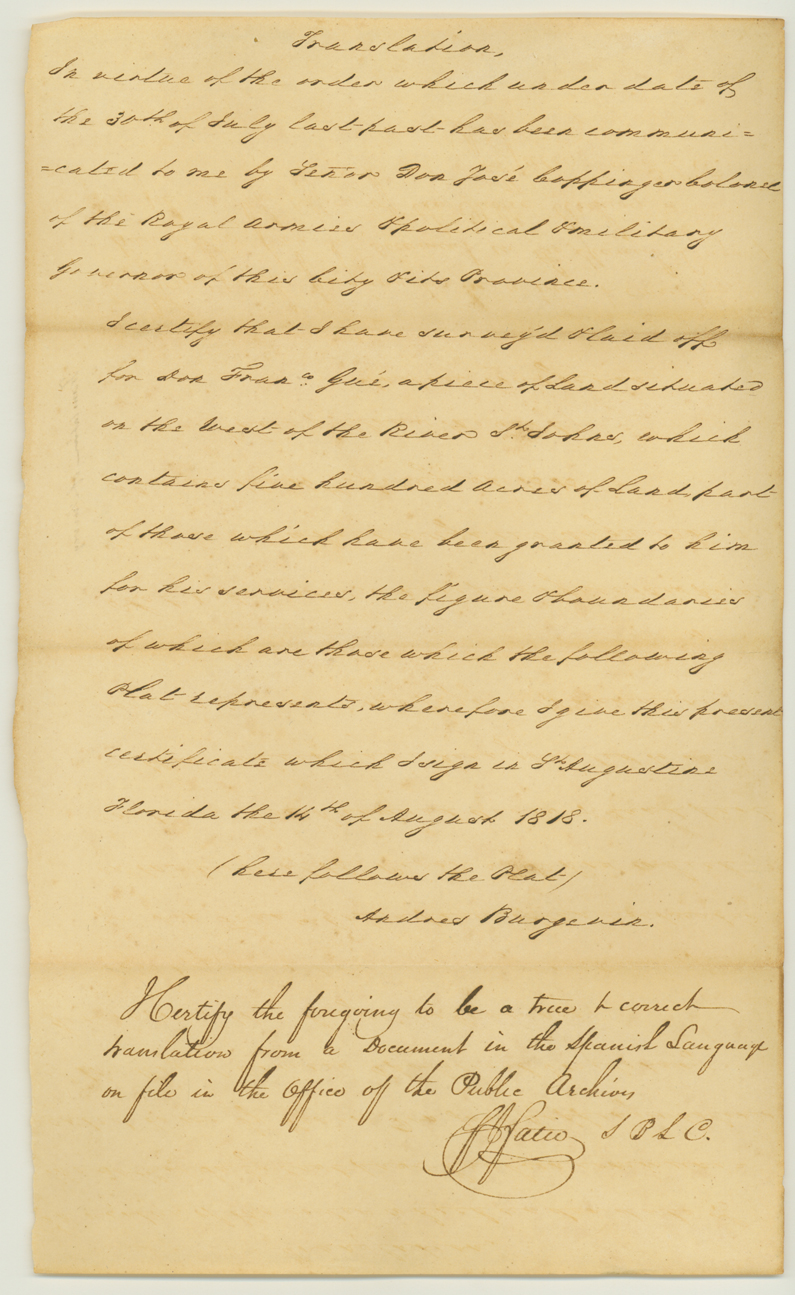 Translation,
In virtue of the order which under date of
the 30th of July last past has been communi=
=cated to me by Señor Don José Coppinger Colonel
of the Royal Armies & political & military
Governor of this City & its Province.
I certify that I have survey'd & laid off
for Don Franco. Gué, a piece of Land situated
on the West of the River St. Johns, which
contains five hundred Acres of Land, part
of those which have been granted to him
for his services, the figure & boundaries
of which are those which the following
Plat represents, wherefore I give this present
certificate which I sign in St. Augustine
Florida the 14th of August 1818.
(here follows the Plat)
Andres Burgevin.
I Certify the foregoing to be a true & correct
translation from a Document in the Spanish Language
on file in the Office of the Public Archives
F J Fatio S B L C.